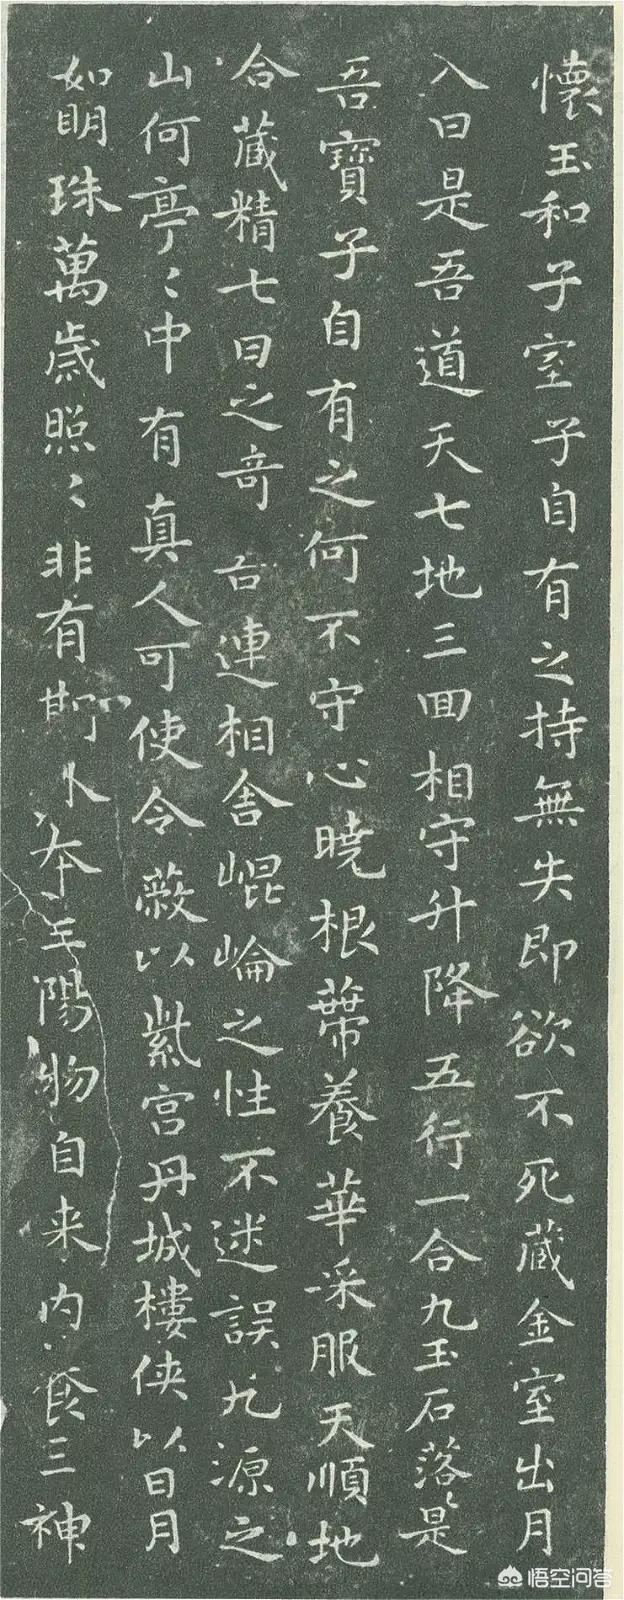 懷玉和子室子自有之持無失即欲不死藏金室出月
入日是吾道天七地三回相守升降五行一合九玉石落〻是
吾寶子自有之何不守心曉根蔕養華采服天順地
合藏精七日之奇吾連相舍崐崘之性不迷誤九源之
山何亭〻中有真人可使令蔽以紫宮丹城樓俠以日月
如明珠萬歲照〻非有期外本三陽物自来内食三神
悟空问答